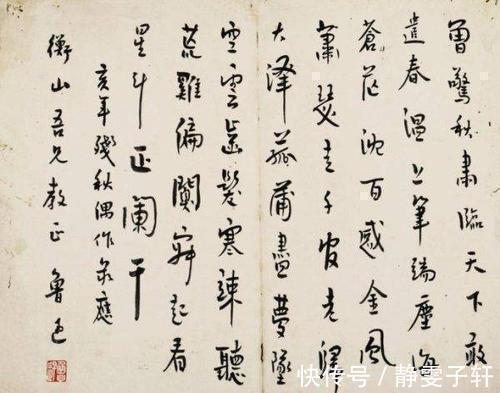 曾驚秋肅臨天下敢
遣春溫上筆端塵海
蒼茫沈百感金風
蕭瑟走千官老歸
大澤菰蒲盡夢墜
空雲齒髮寒竦聽
荒雞偏闃寂起看
星斗正闌干
亥年殘秋偶作錄應
衡山吾兄教正 魯迅
快传号 / 静雯子轩